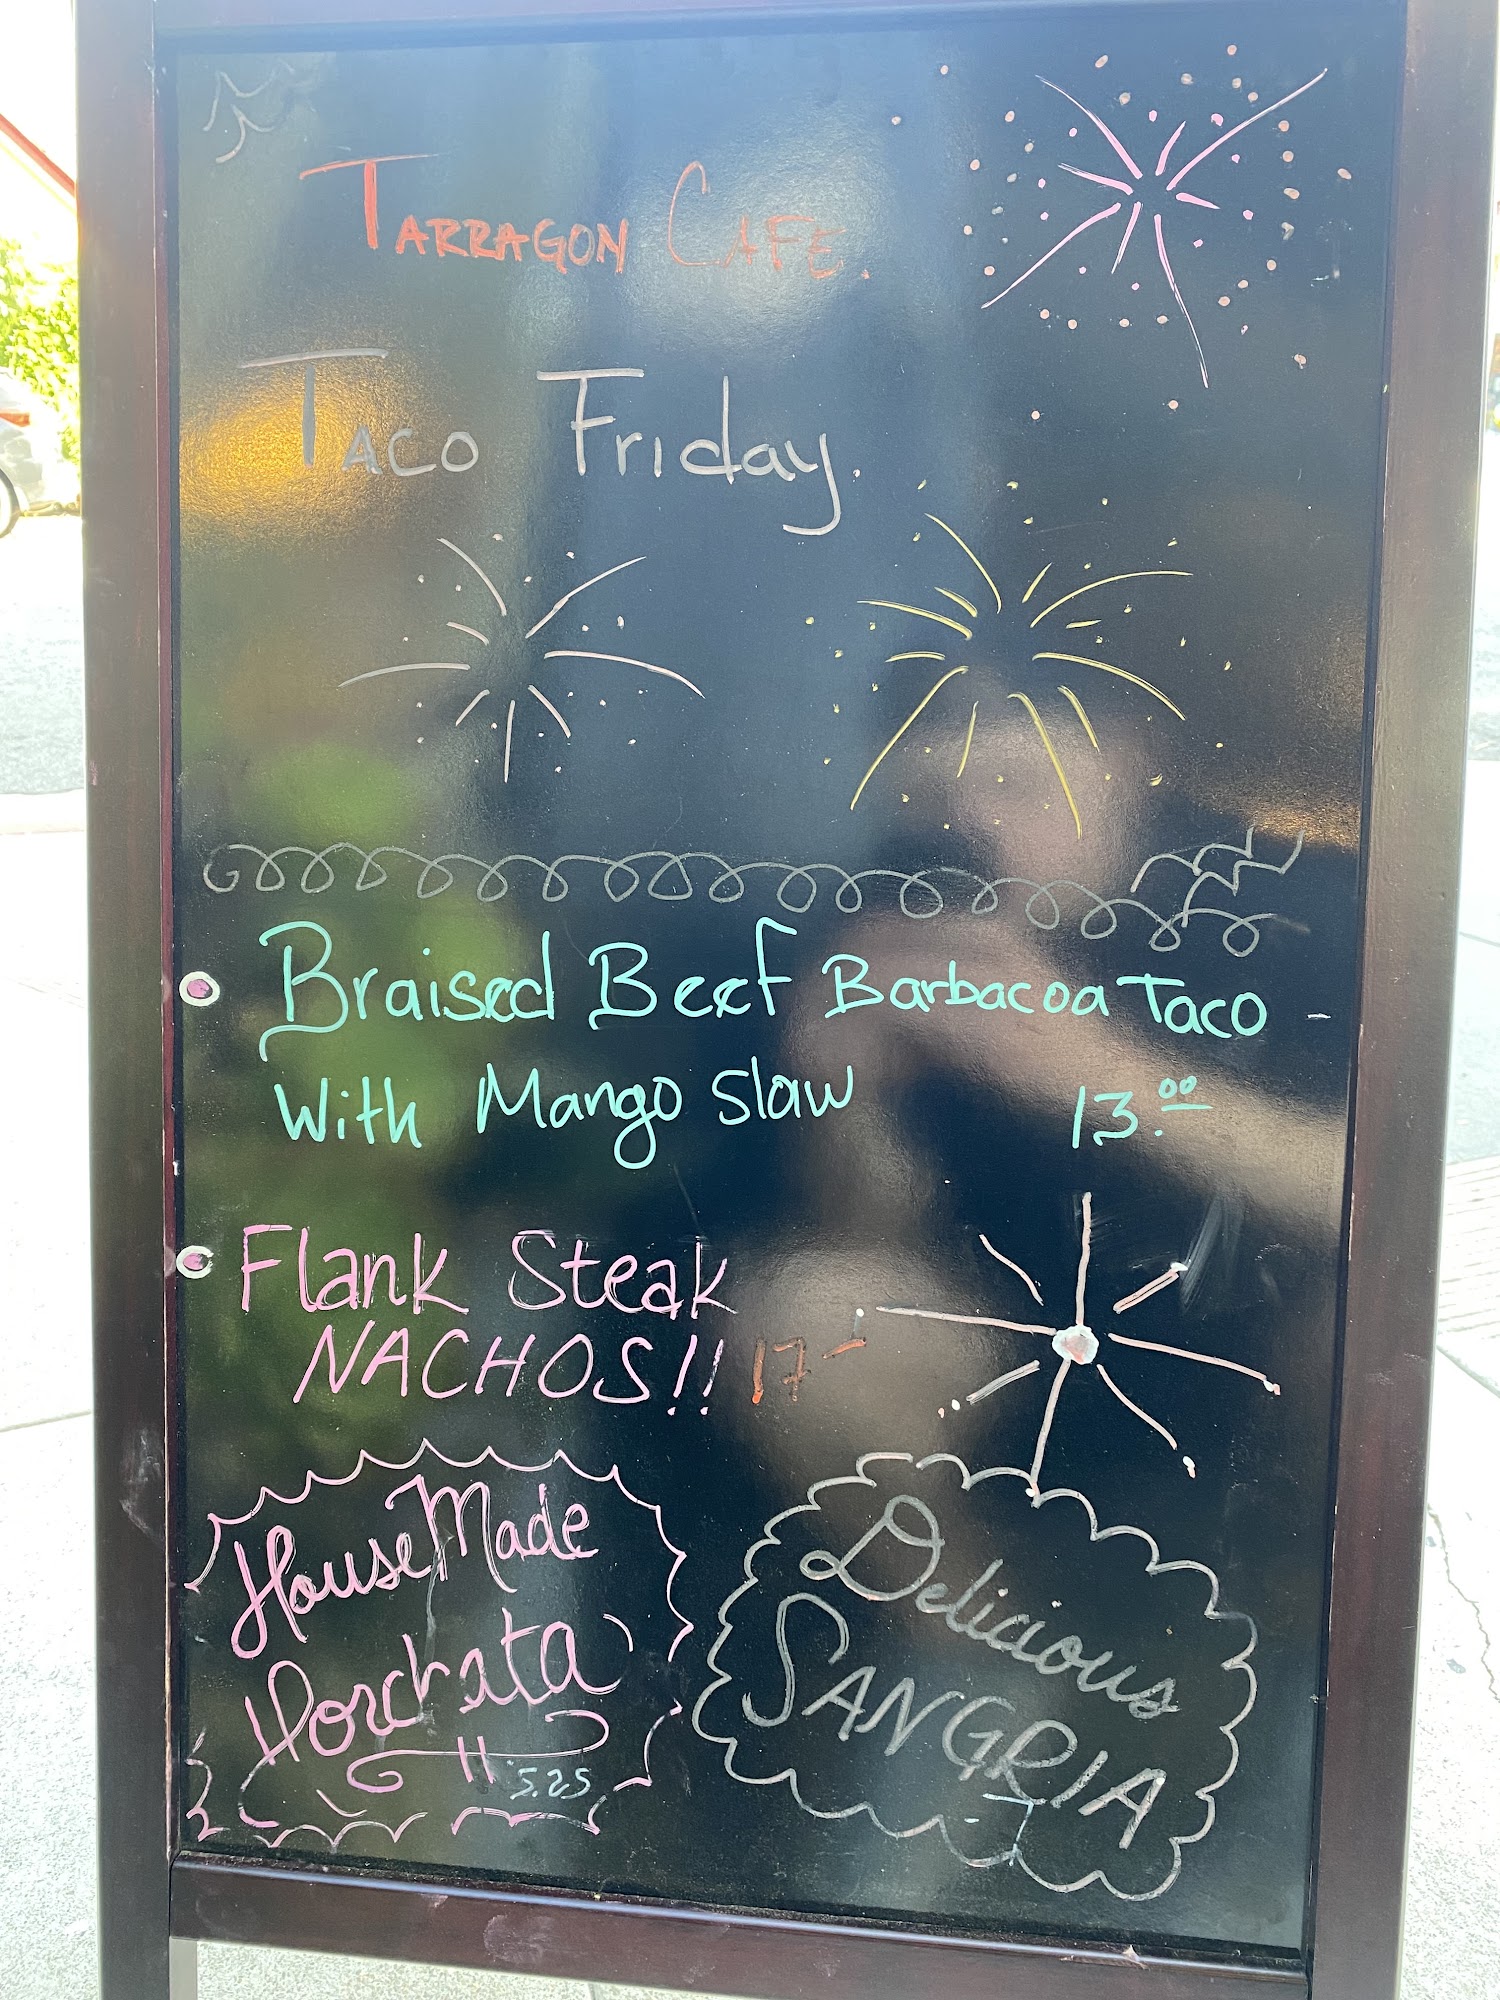 TARRAGON CAFE.
TACO Friday.
Braised Beef Barbacoa Taco -
With Mango Slaw 13.00
Flank Steak
NACHOS!! 17-
House Made
Horchata
5.25
Delicious
SANGRIA
7